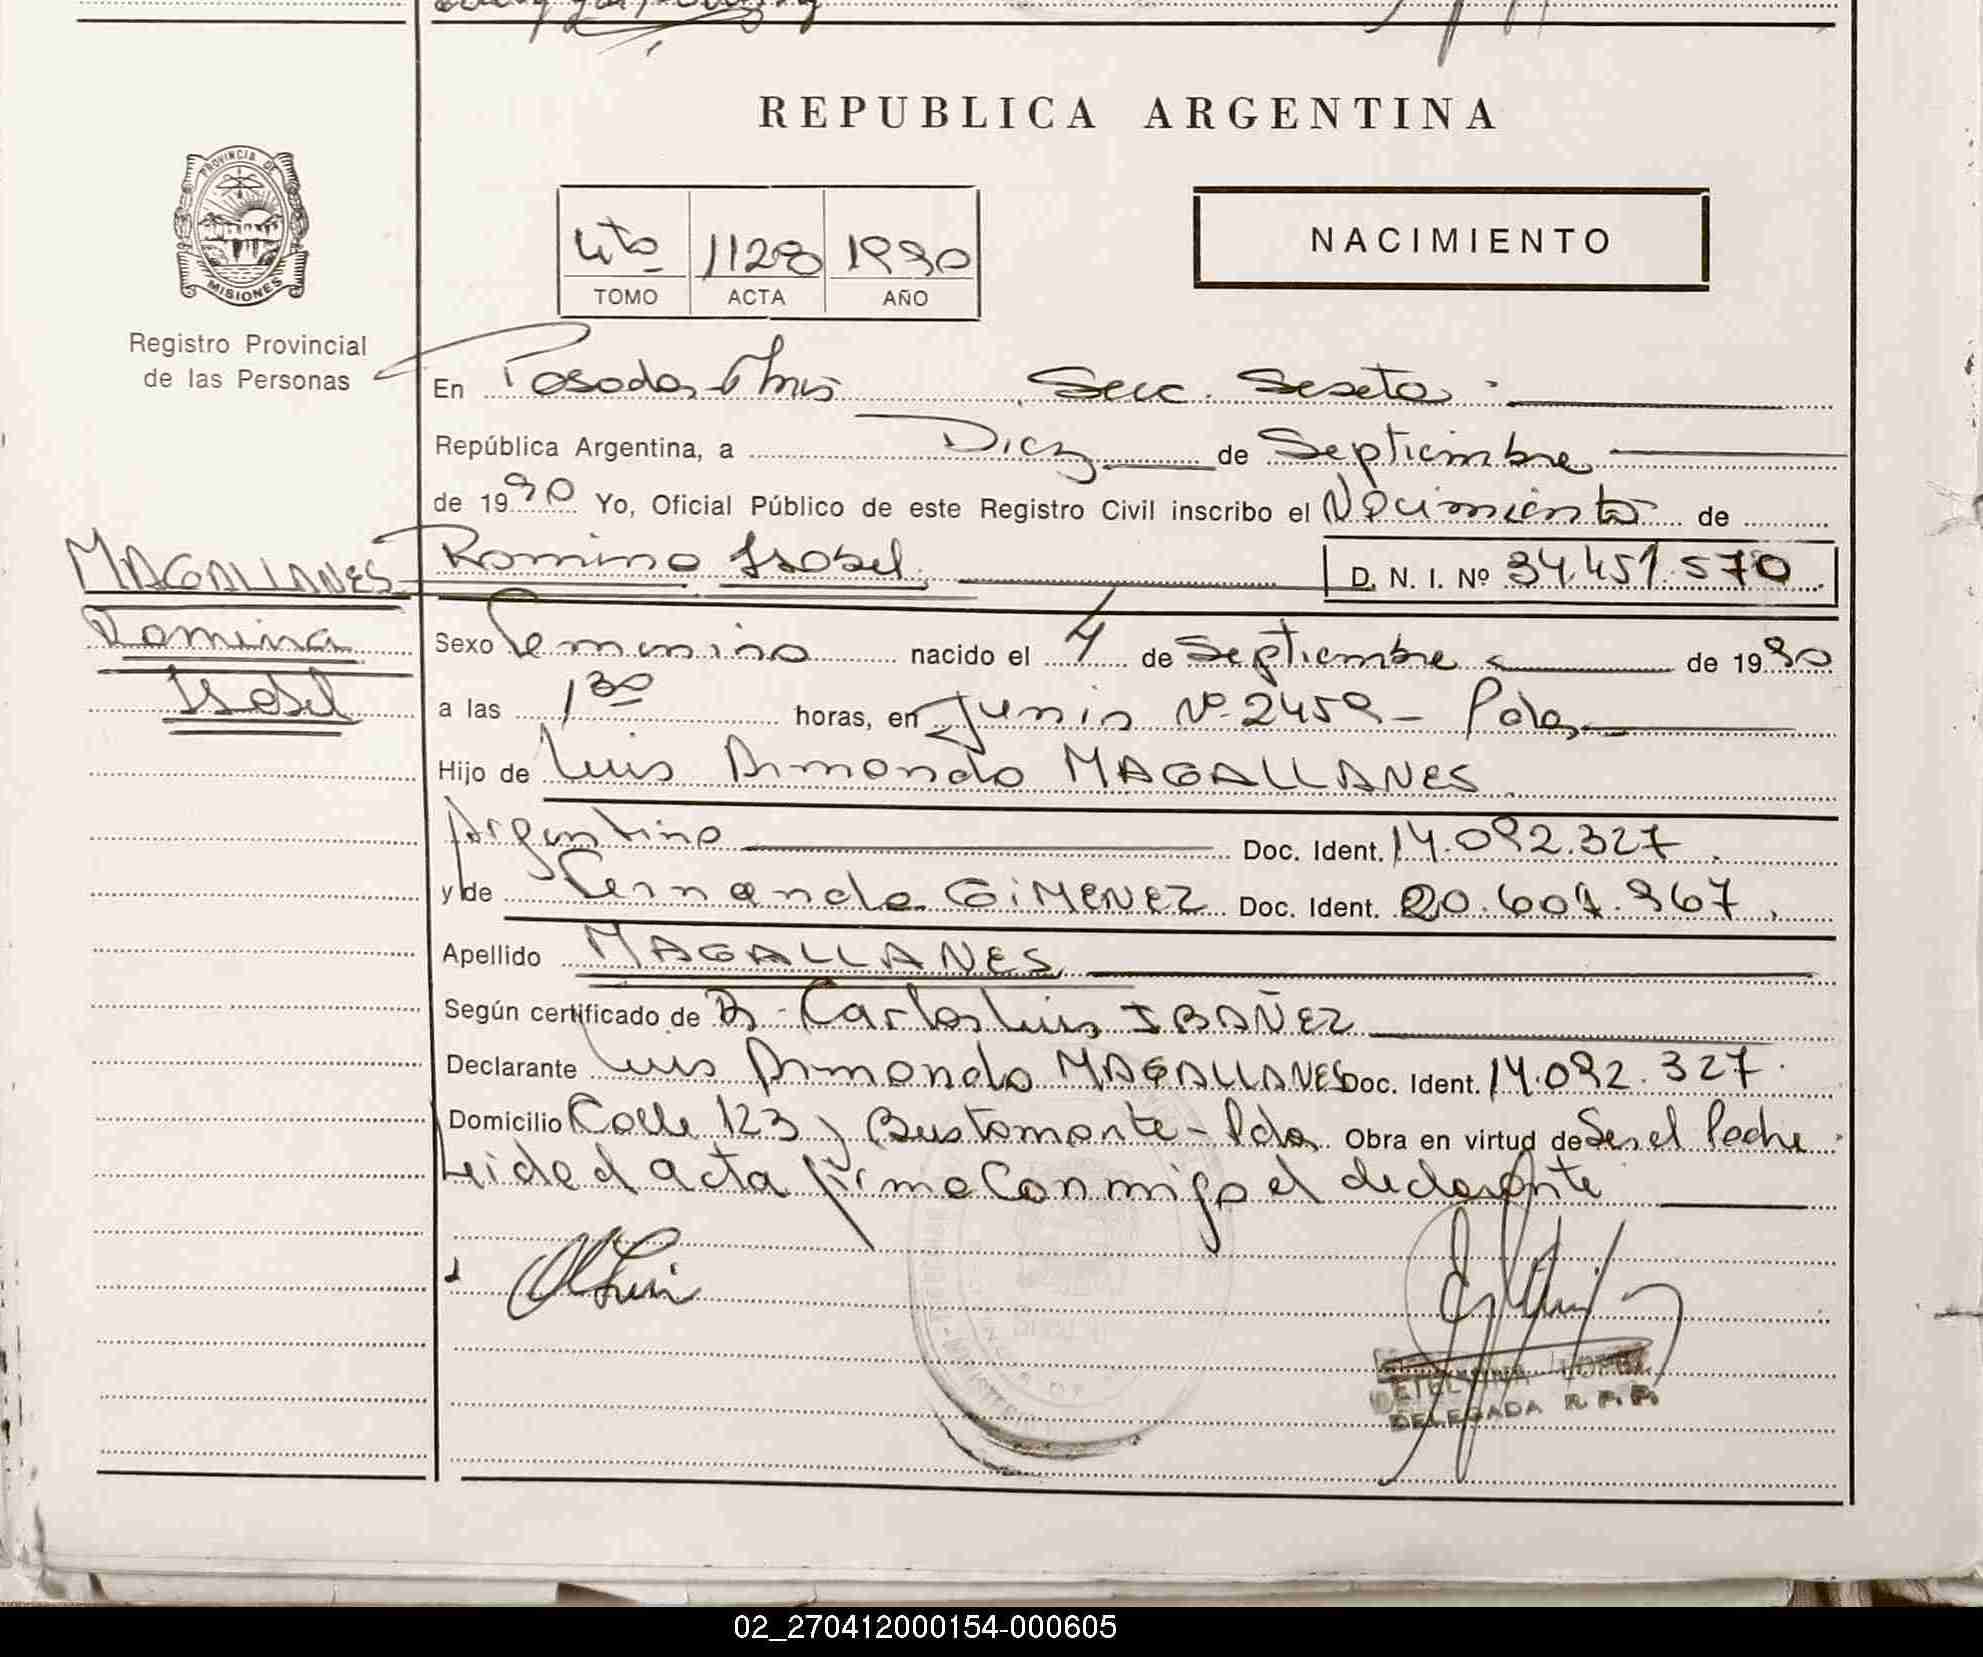 REPUBLICA ARGENTINA
PROVINCIA DE
MISIONES
Registro Provincial
de las Personas
4to 1128 1990
TOMO ACTA AÑO
NACIMIENTO
En Posadas Mnes Secc. Sexta
República Argentina, a Diez de Septiembre
de 1990 Yo, Oficial Público de este Registro Civil inscribo el Nacimiento de
MAGALLANES
Romina
Isabel
Romina Isabel D. N. I. Nº 34.451.570
Sexo Femenino nacido el 4 de Septiembre de 1990
a las 1 30 horas, en Junin Nº 2459 - Pdas
Hijo de Luis Armando MAGALLANES
Argentino Doc. Ident. 14.092.327
y de Fernanda GIMENEZ Doc. Ident. 20.601.967
Apellido MAGALLANES
Según certificado de Dr. Carlos Luis IBAÑEZ
Declarante Luis Armando MAGALLANES Doc. Ident. 14.092.327.
Domicilio Calle 123 y Bustamante - Pdas Obra en virtud de Ser el Padre.
Leida el acta firma Conmigo el declarante
DELEGADA R. P. P.
02_270412000154-000605